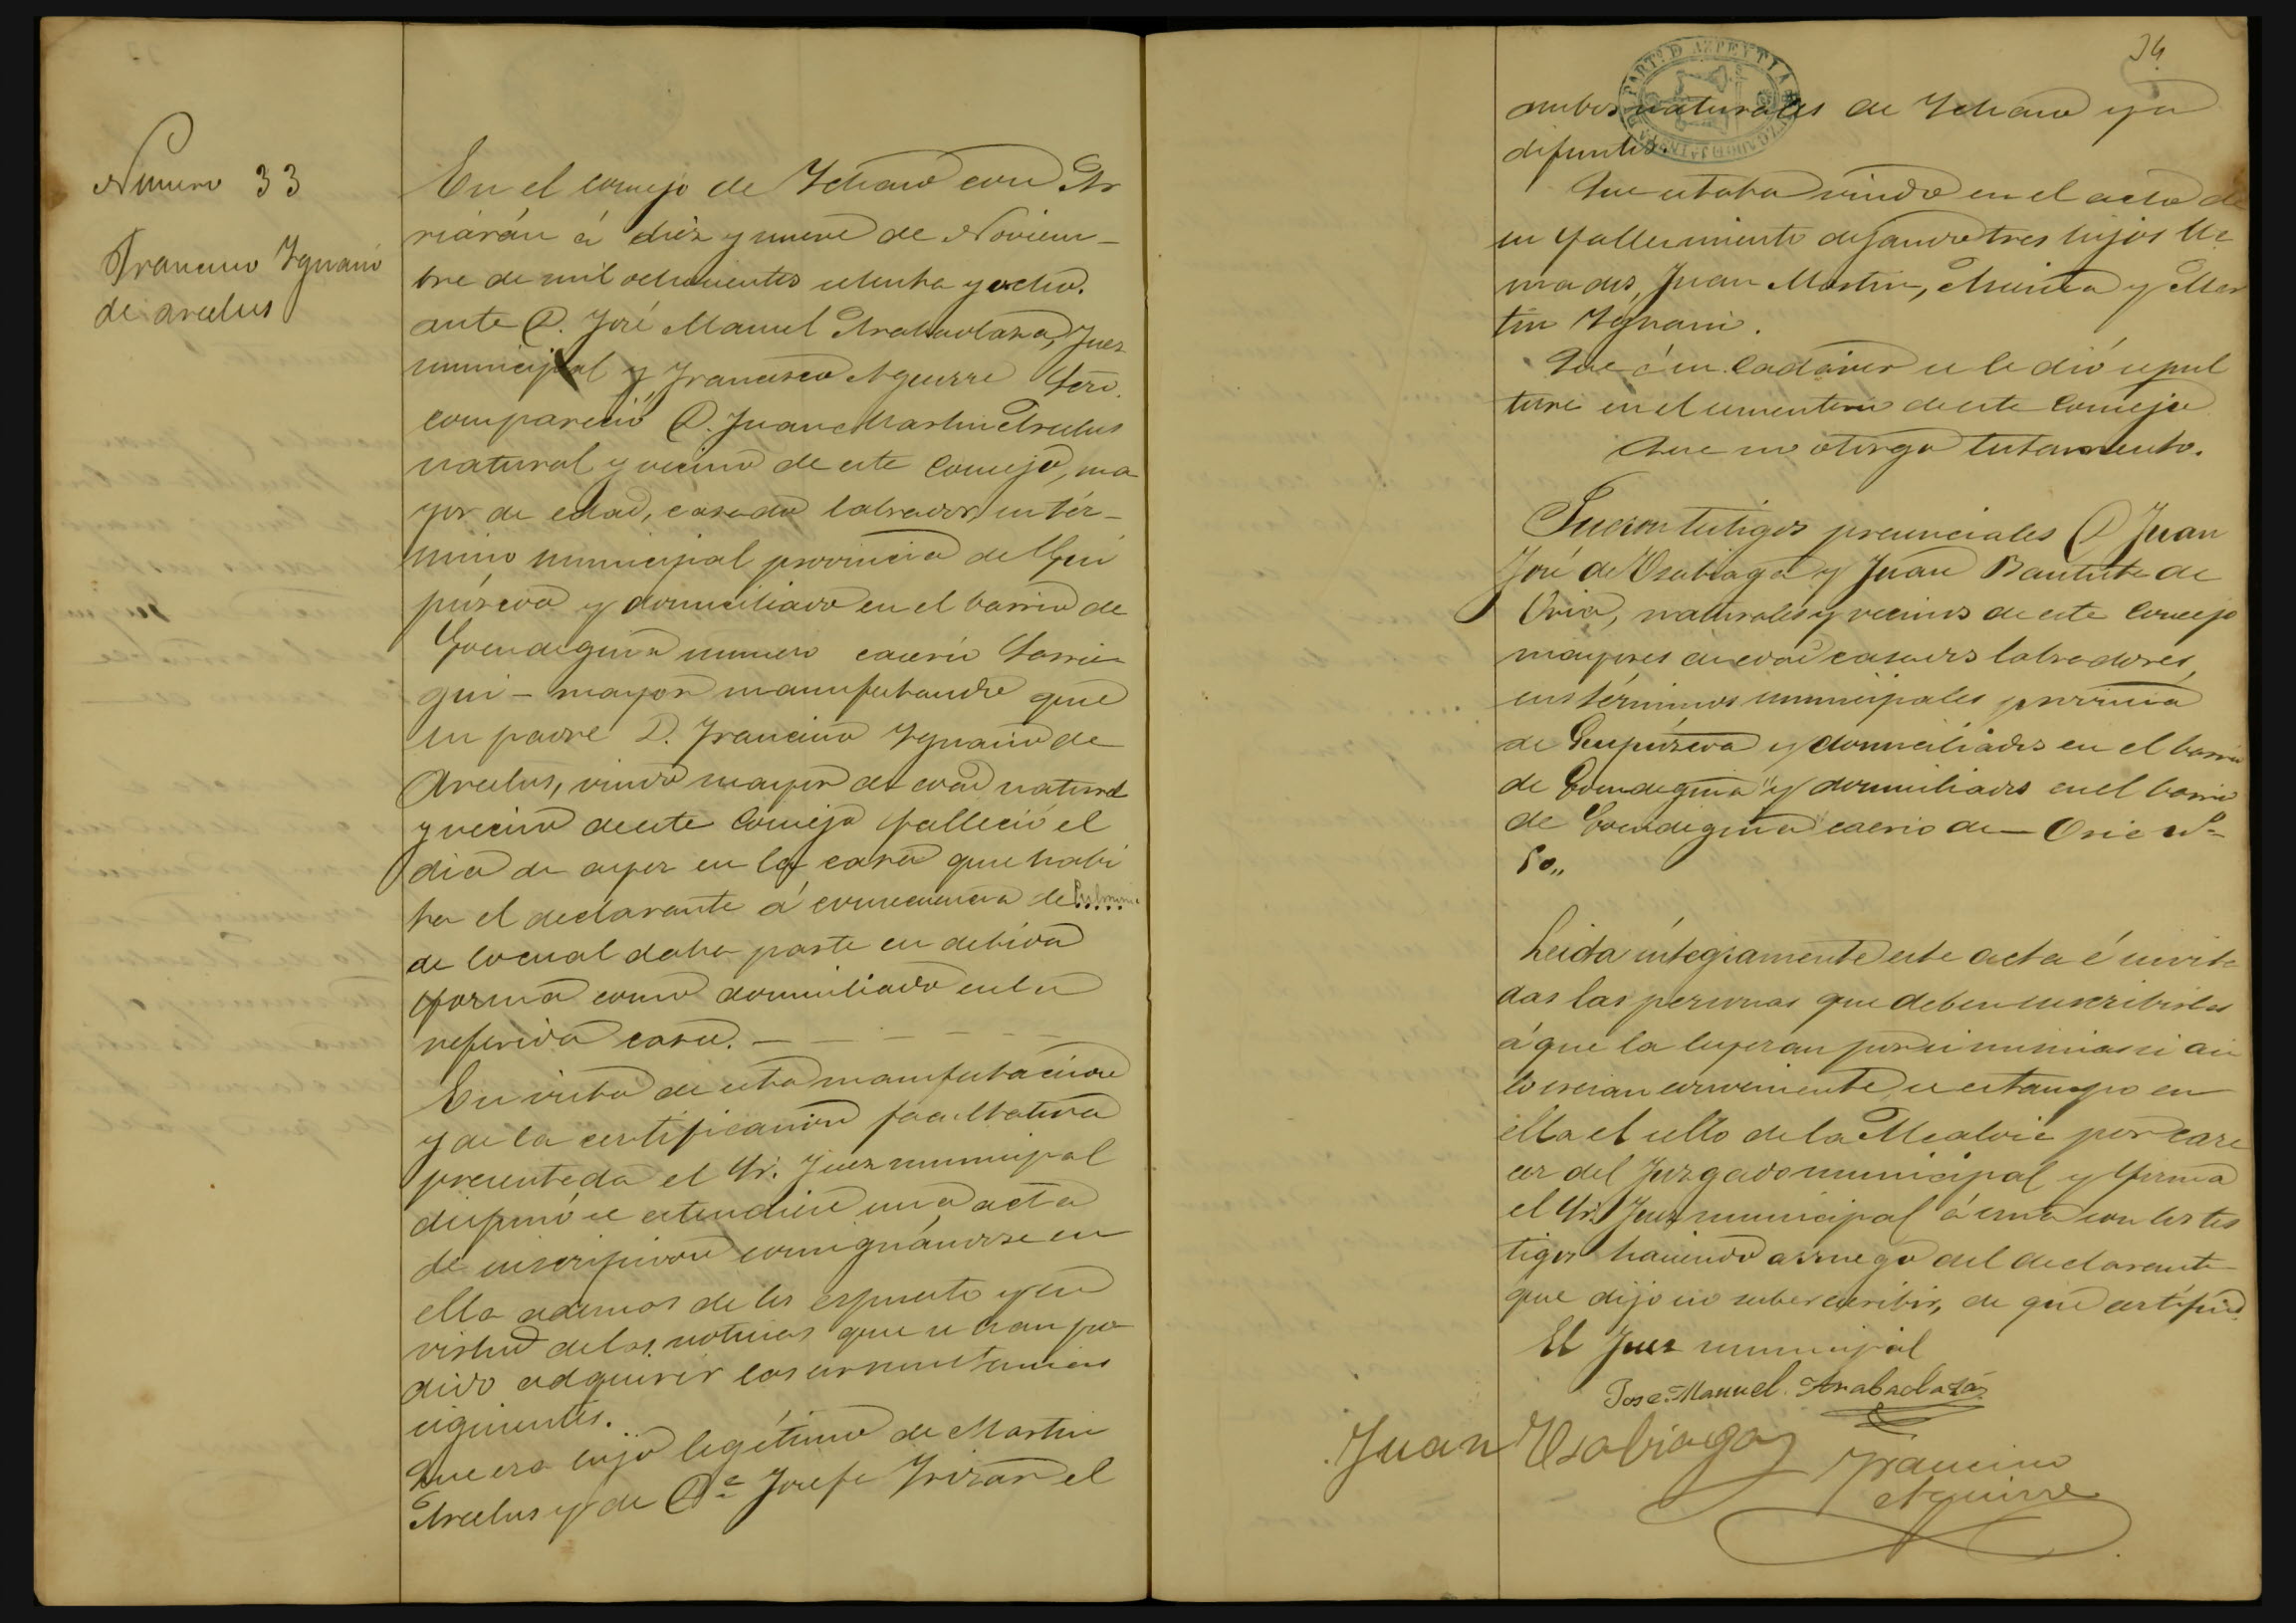 Número 33
Francisco Ygnacio
de Arcelus
En el concejo de Ichaso con Ar
riarán á diez y nueve de Noviem-
bre de mil ochocientos setenta y ocho.
ante D. José Manuel Arabaolaza, Juez
municipal y Francisco Aguirre Srio.
compareció D. Juan Martin Arcelus
natural y vecino de este Concejo, ma
yor de edad, casado labrador, su tér-
mino municipal provincia de Gui
púzcoa y domiciliado en el barrio de
Goendeguia número caserio
gui - mayor manifestando que
su padre D. Francisco Ygnacio de
Arcelus, viudo mayor de edad natural
y vecino de este Concejo falleció el
dia de ayer en la casa que habi
ta el declarante á consecuencia de
de lo cual daba parte en debida
forma como domiciliado en la
referida casa. -
En vista de esta manifestacion
y de la certificacion facultativa
presentada el Sr. Juez municipal
dispuso se estendiese una acta
de inscripcion consignándose en
ella ademas de lo espuesto y en
virtud de las noticias que se han po
dido adquirir las circunstancias
siguientes.
Que era hijo legítimo de Martin
Arcelus y de Dª Josefa Irizar el
34
PARTº D AZPEYTIA
ambos naturales de Ychaso ya
difuntos.
Que estaba viudo en el acto de
su fallecimiento dejando tres hijos lla
mados, Juan Martin, y Mar
tin Ygnacio.
Que á su Cadáver se le dió sepul
tura en el cementerio de este Concejo
Que no otorgó testamento.
Fueron testigos presenciales D Juan
José de Usabiaga y Juan Bautista de
Oria, naturales y vecinos de este Concejo
mayores de edad casados labradores,
sus términos municipales provincia
de Guipúzcoa y domiciliados en el barrio
de Goendeguia y domiciliados en el barrio
de Goendeguia caserio de - Oria Nº
50,,
Leida íntegramente este acta é invita
das las personas que deben suscribirla
á que la leyeran por si mismas si asi
lo creian conveniente, se estampó en
ella el sello de la Alcaldia por care
cer del Juzgado municipal y firma
el Sr. Juez municipal ó sea con los tes
tigos haciendo a ruego del declarante
que dijo no saber escribir, de que certifico.
El Juez municipal
Jose Manuel Arabaolaza
Juan Usabiaga
Francisco
Aguirre